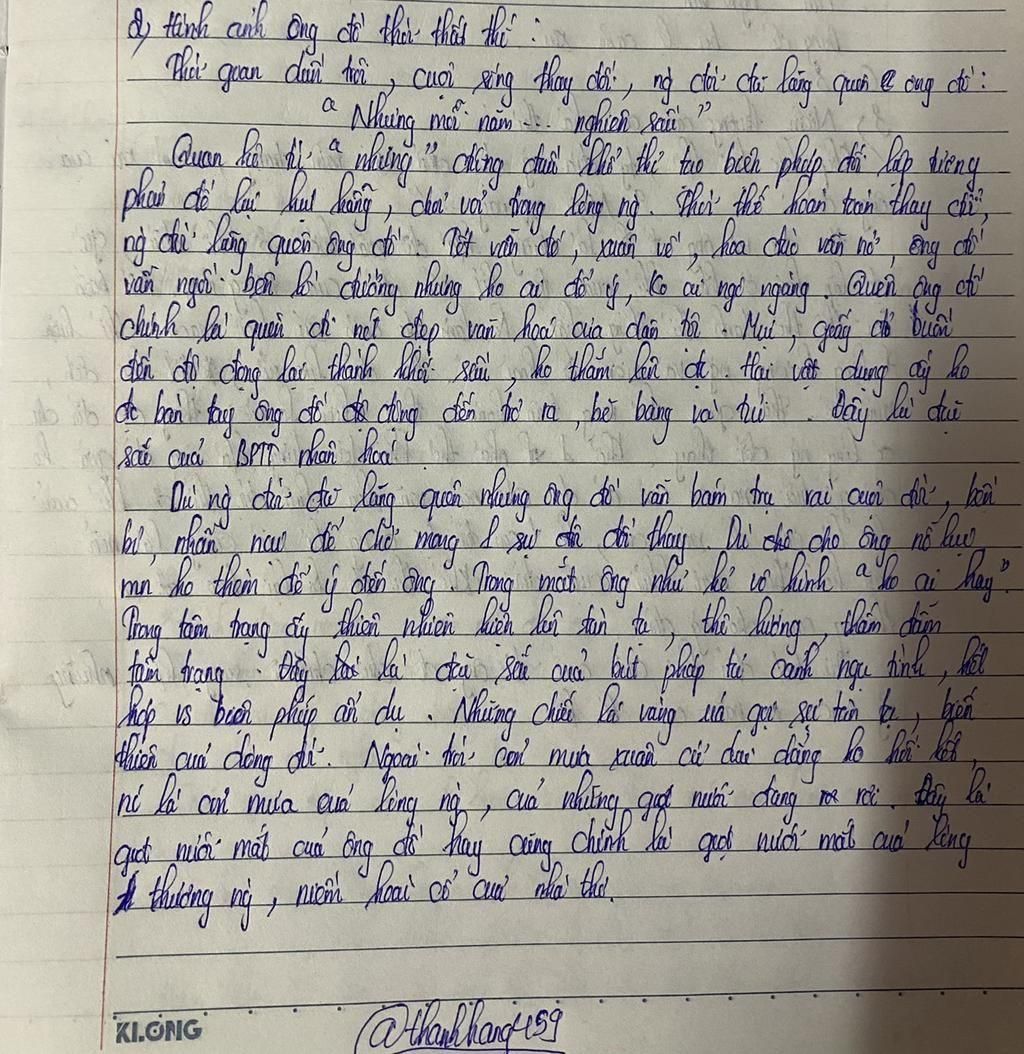 2) Hình ảnh ông đồ thời thất thế :
Thời gian dần trôi, cuộc sống thay đổi, ng đời đã lãng quên ông đồ :
"Nhưng mỗi năm ... nghiên sầu"
Quan hệ từ "nhưng" đứng đầu khổ thơ tạo biện pháp đối lập tương
phản để lại hụt hẫng, chơi vơi trong lòng ng. Thời thế hoàn toàn thay đổi,
ng đời lãng quên ông đồ. Tết vẫn đến, xuân về, hoa đào vẫn nở, ông đồ
vẫn ngồi bên hè đường nhưng ko ai để ý, ko ai ngó ngàng. Quên ông đồ
chính là quên đi nét đẹp văn hoá của dân tộc. Mực, giấy buồn
đến độ đọng lại thành khối sầu, ko thắm lên đc. Hai vật dụng ấy ko
đc bàn tay ông đồ động đến trở ra, bẽ bàng và tủi. Đây là đặc
sắc của BPTT nhân hoá.
Dù ng đời đã lãng quên nhưng ông đồ vẫn bám trụ vài cuộc đời, bền
bỉ, nhẫn nại để chờ mong 1 sự đổi thay. Dù cho ông nỗ lực
mn ko thèm để ý đến ông. Trong mắt ông như kẻ vô hình "ko ai hay".
Trong tâm trạng ấy thiên nhiên hiện lên tàn tạ, thê lương, thấm đẫm
tâm trạng. Đây là đặc sắc của bút pháp tả cảnh ngụ tình, kết
hợp vs biện pháp ẩn dụ. Những chiếc lá vàng úa gợi sự tàn tạ, biến
thiên của dòng đời. Ngoài trời cơn mưa xuân cứ dai dẳng ko hồi kết,
nó là cơn mưa của lòng ng, của những giọt nước đang rơi. Đây là
giọt nước mắt của ông đồ hay cũng chính là giọt nước mắt của lòng
thương ng, niềm hoài cổ của nhà thơ.
KLONG
@thanhhang459